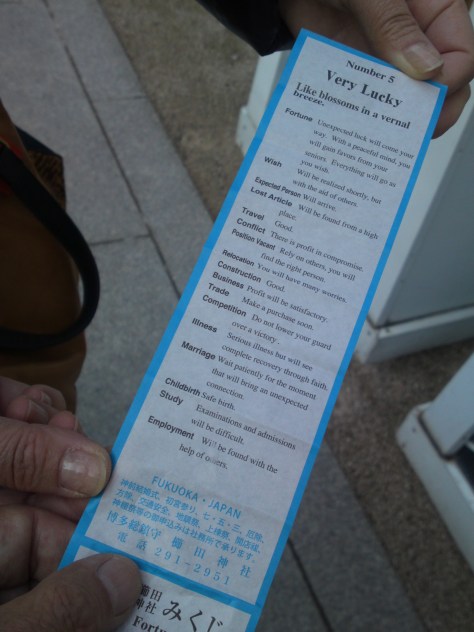 Number 5
Very Lucky
Like blossoms in a vernal
breeze.
Fortune Unexpected luck will come your
way. With a peaceful mind, you
will gain favors from your
seniors. Everything will go as
you wish.
Wish Will be realized shortly, but
with the aid of others.
Expected Person Will arrive.
Lost Article Will be found from a high
place.
Travel Good.
Conflict There is profit in compromise.
Position Vacant Rely on others, you will
find the right person.
Relocation You will have many worries.
Construction Good.
Business Profit will be satisfactory.
Trade Make a purchase soon.
Competition Do not lower your guard
over a victory.
Illness Serious illness but will see
complete recovery through faith.
Marriage Wait patiently for the moment
that will bring an unexpected
connection.
Childbirth Safe birth.
Study Examinations and admissions
will be difficult.
Employment Will be found with the
help of others.
FUKUOKA・JAPAN
神前結婚式、初宮参り、七・五・三、厄除、
方除、交通安全、地鎮祭、上棟祭、開店祓、
神棚祭等の御申込みは社務所で承ります。
博多総鎮守 櫛田神社
電話 291-2951
櫛田
神社 みくじ